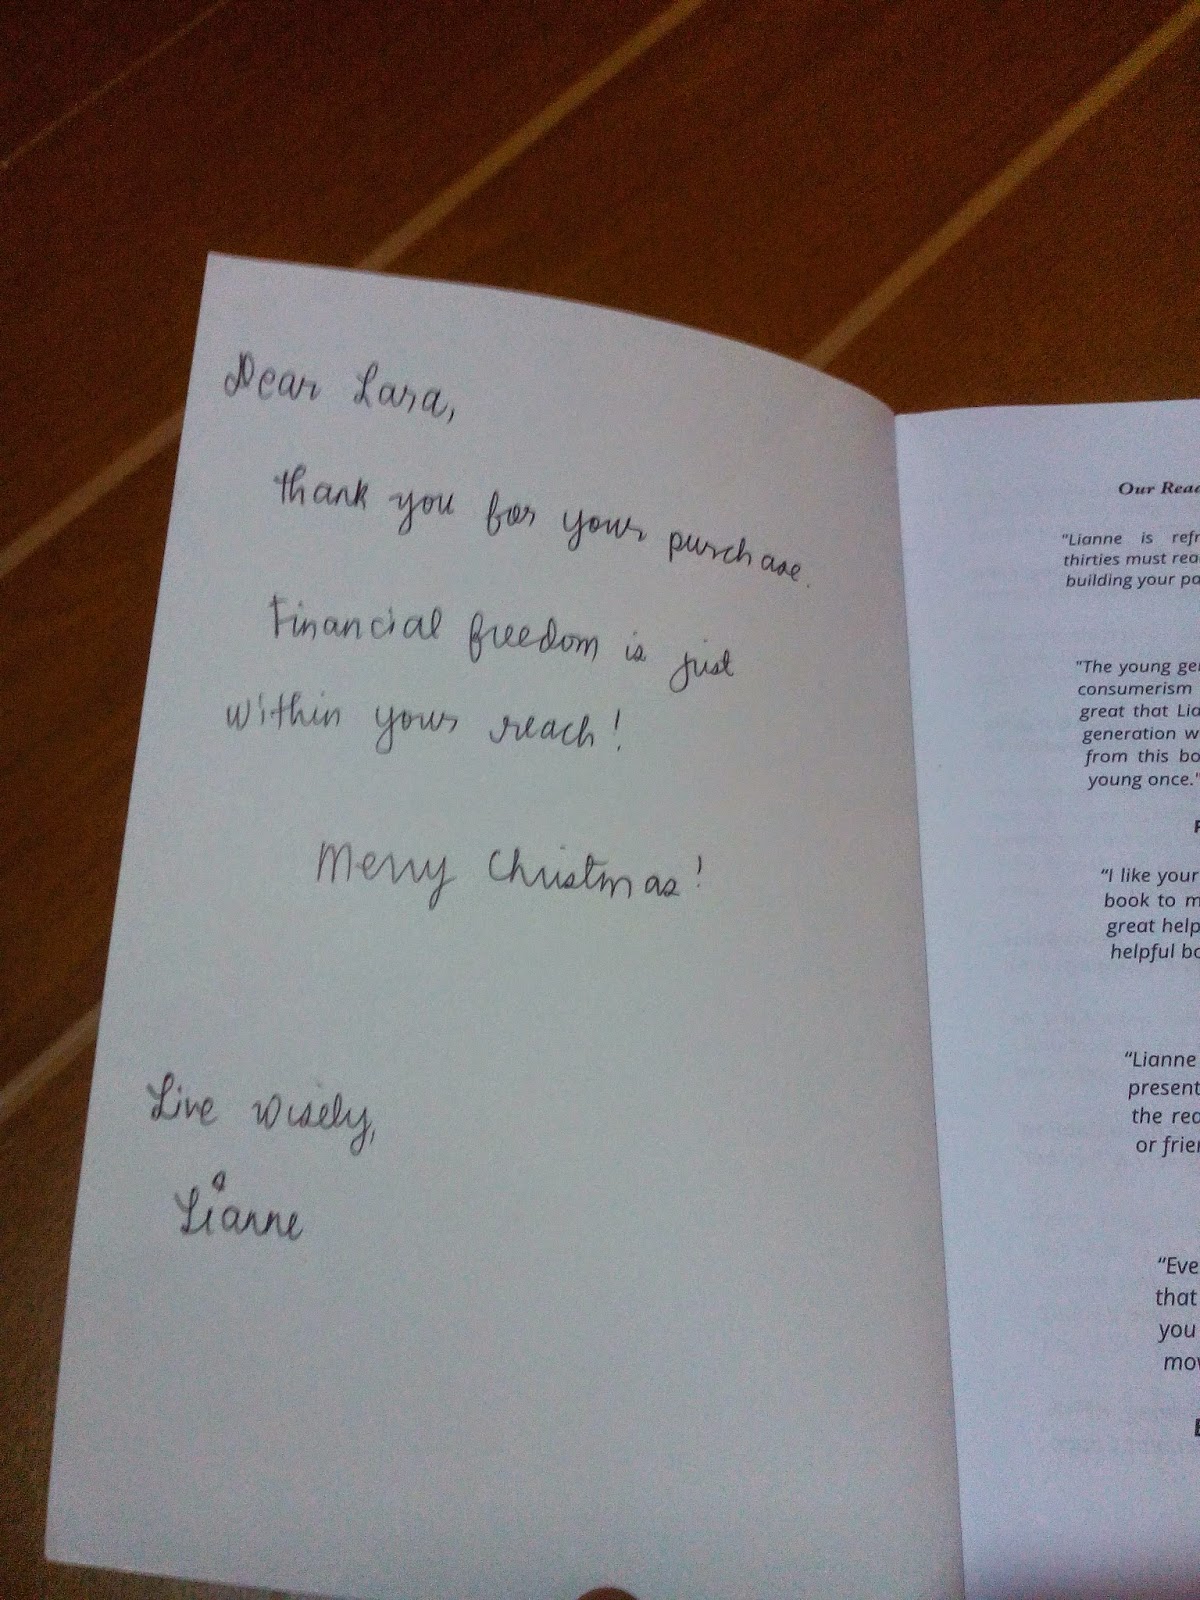 Dear Lara,
Thank you for your purchase.
Financial freedom is just
within your reach!
Merry Christmas!
Live wisely,
Lianne
Our Read
"Lianne is refr
thirties must rea
building your pa
"The young ge
consumerism
great that Lia
generation w
from this bo
young once."
"I like your
book to m
great help
helpful bo
"Lianne
present
the rea
or frien
"Eve
that
you
mov